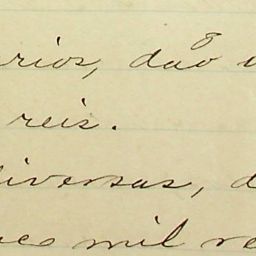 rios, dão
reis.
iversas, d
mil re